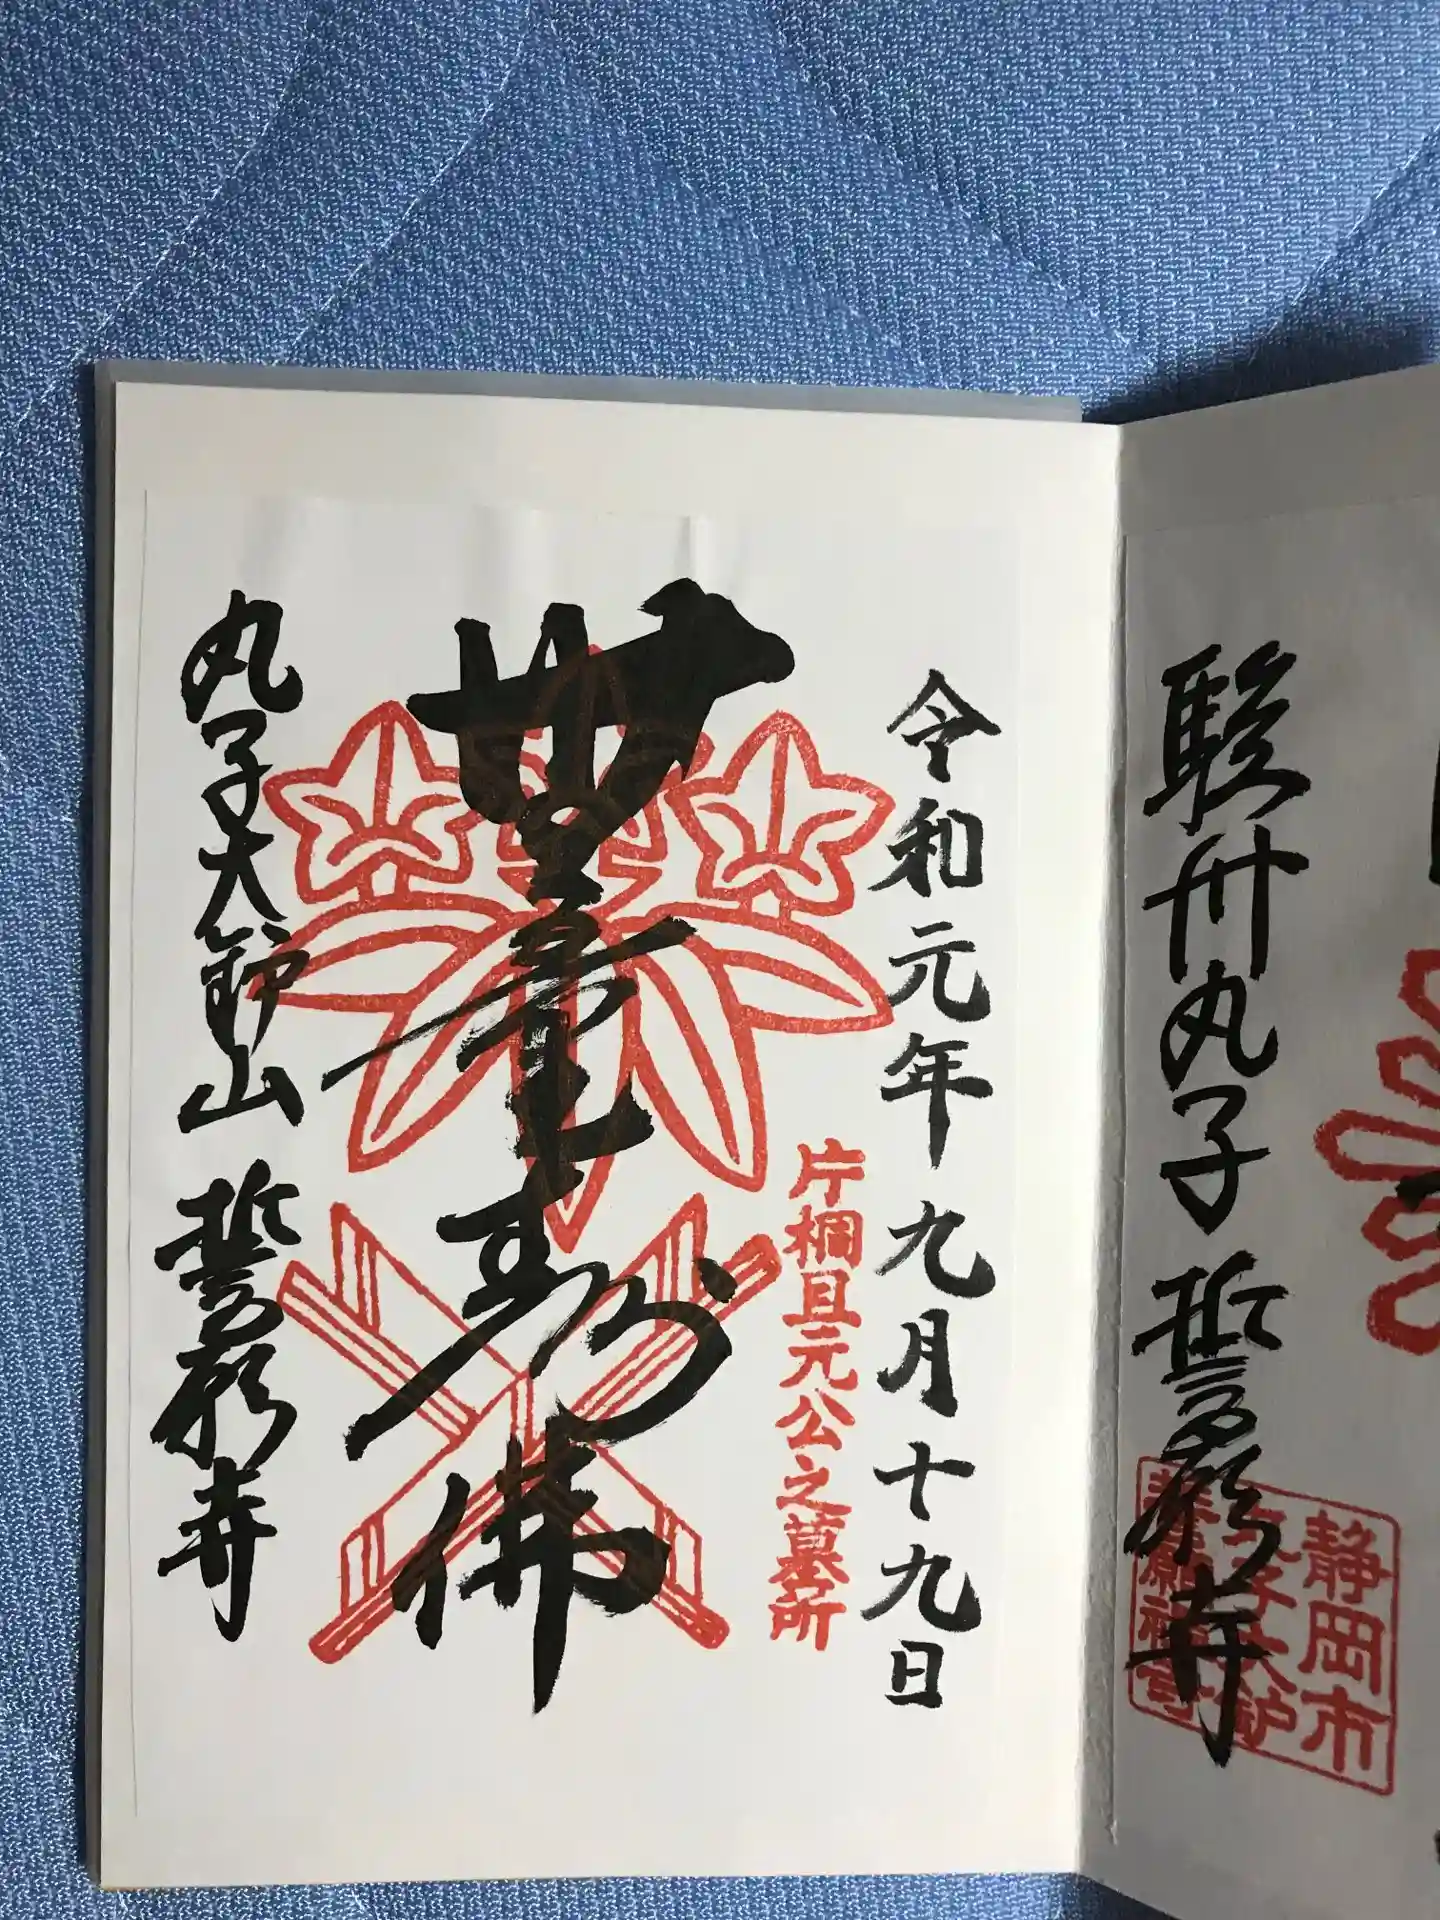 駿州丸子 誓願寺
静岡市
丸子大鈩
令和元年九月十九日
片桐且元公之墓所
無量壽佛
丸子大鈩山 誓願寺